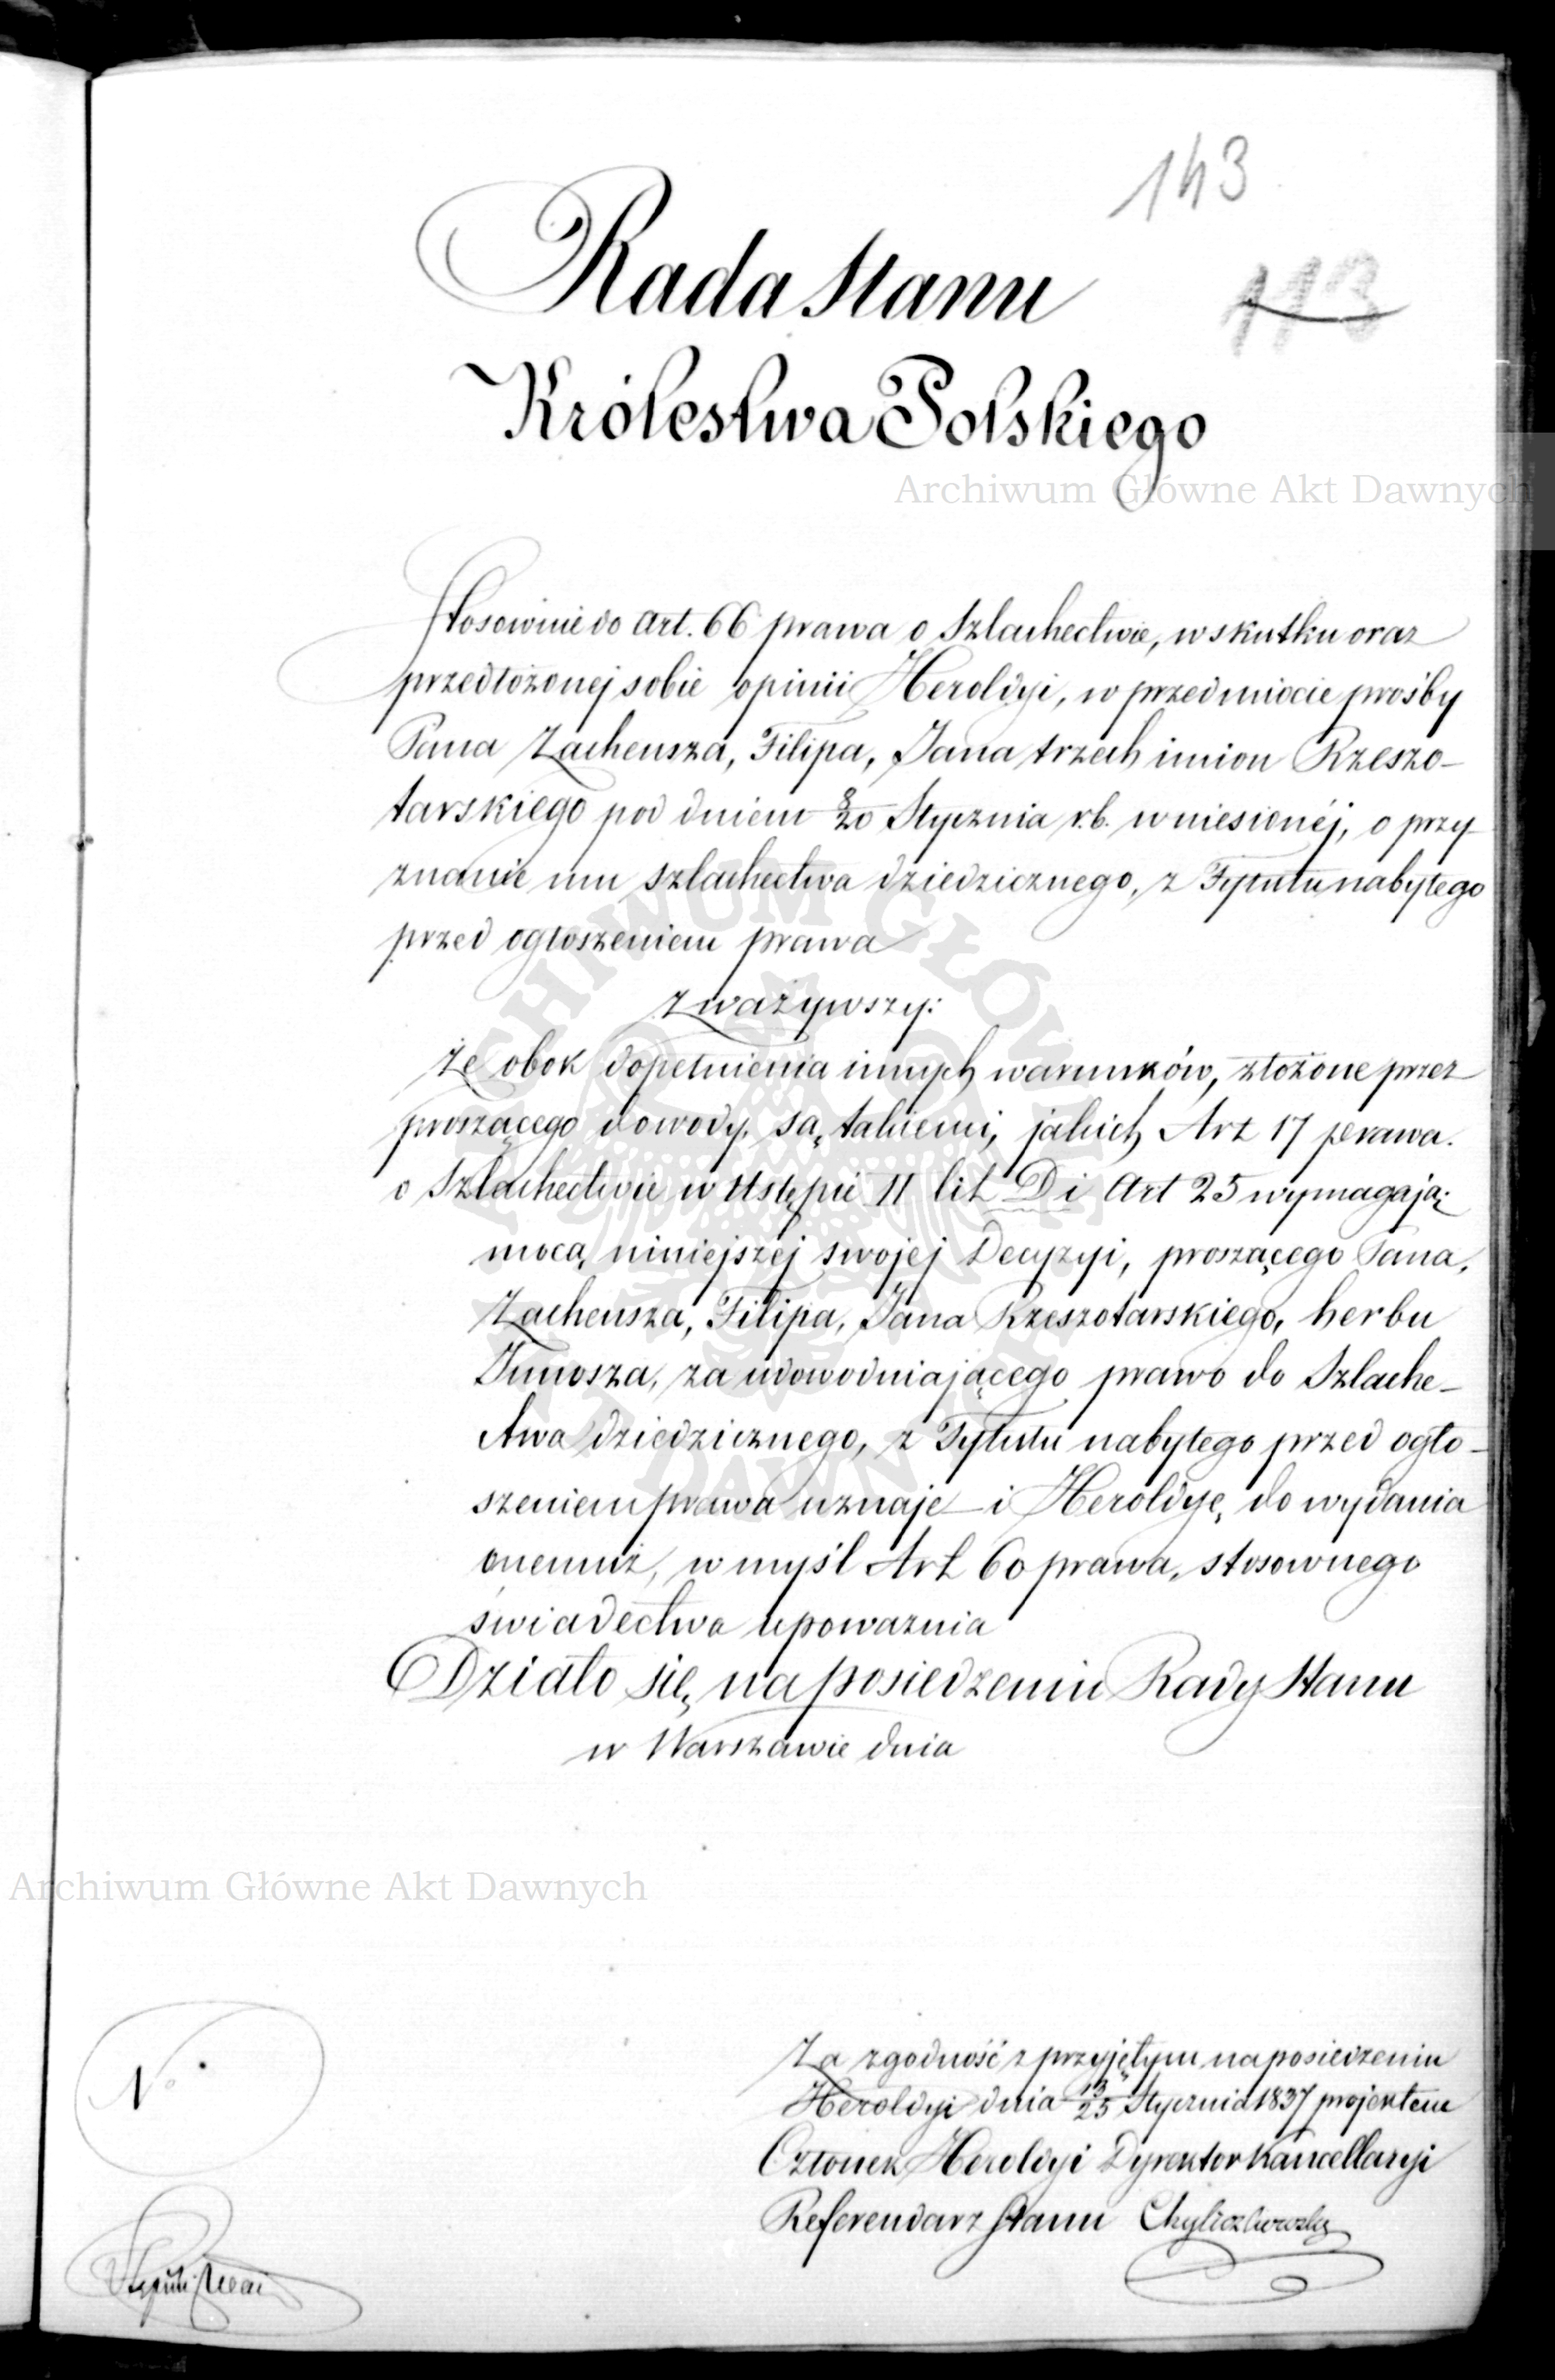 143
113
Rada Stanu
Królestwa Polskiego
Archiwum Główne Akt Dawnych
Stosownie do Art. 66 prawa o Szlachectwie, w skutku oraz
przedłożonej sobie opinii Heroldyi, w przedmiocie prośby
Pana Zacheusza, Filipa, Jana trzech imion Rzeszo-
tarskiego pod dniem 8/20 Stycznia r.b. wniesionéj, o przy-
znanie mu szlachectwa dziedzicznego, z Tytułu nabytego
przed ogłoszeniem prawa
Zważywszy:
Że obok dopełnienia innych warunków, złożone przez
proszącego dowody, są takiemi, jakich Art 17 prawa
o Szlachectwie w Ustępie 11 lit D i Art 25 wymagają;
mocą niniejszej swojej Decyzyi, proszącego Pana,
Zacheusza, Filipa, Jana Rzeszotarskiego, herbu
Junosza, za udowodniającego prawo do Szlache-
ctwa dziedzicznego, z Tytułu nabytego przed ogło-
szeniem prawa uznaje i Heroldyę, do wydania
onemuż, w myśl Art 60 prawa, stosownego
świadectwa upoważnia
Działo się, na posiedzeniu Rady Stanu
w Warszawie dnia
Archiwum Główne Akt Dawnych
No.
Za zgodność z przyjętym na posiedzeniu
Heroldyi dnia 13/25 Stycznia 1837 projektem
Członek Heroldyi Dyrektor Kancellaryi
Referendarz Stanu
ARCHIWUM GŁÓWNE AKT DAWNYCH